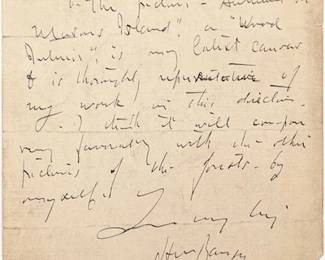 the picture -
Masons Island", a "Wood
Interior", is my latest canvas
& is thoroughly representative of
my work in this direction.
I think it will compare
very favorably with the other
pictures of the forests by
myself.